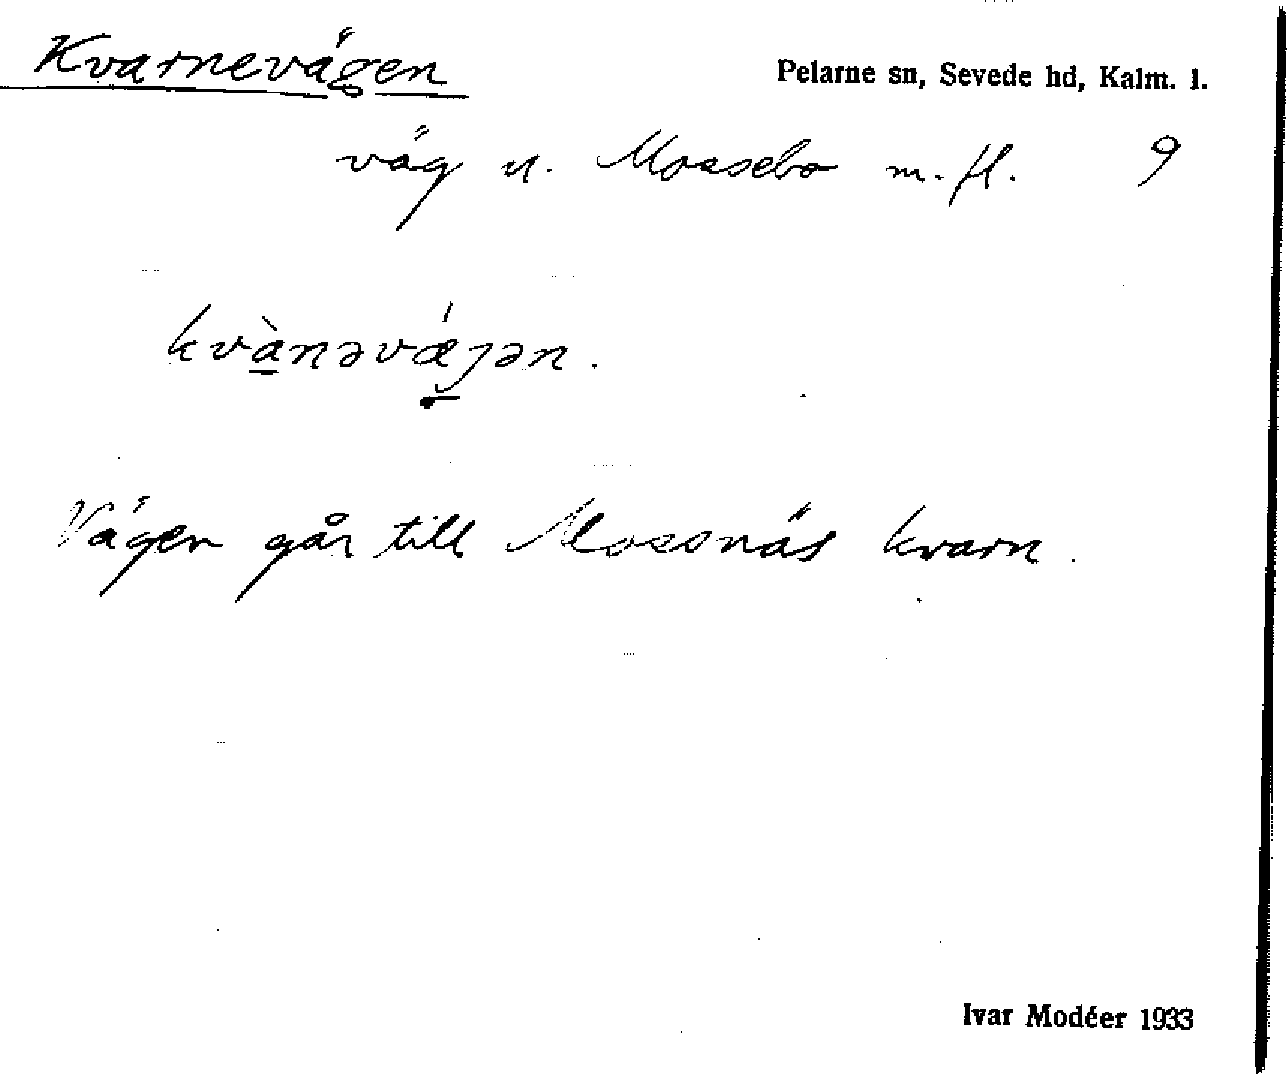 Kvarnevägen
Pelarne sn, Sevede hd, Kalm. l.
väg u. Mossebo m.fl. 9
kvànəvǽjən.
Vägen går till Mossnäs kvarn.
Ivar Modéer 1933